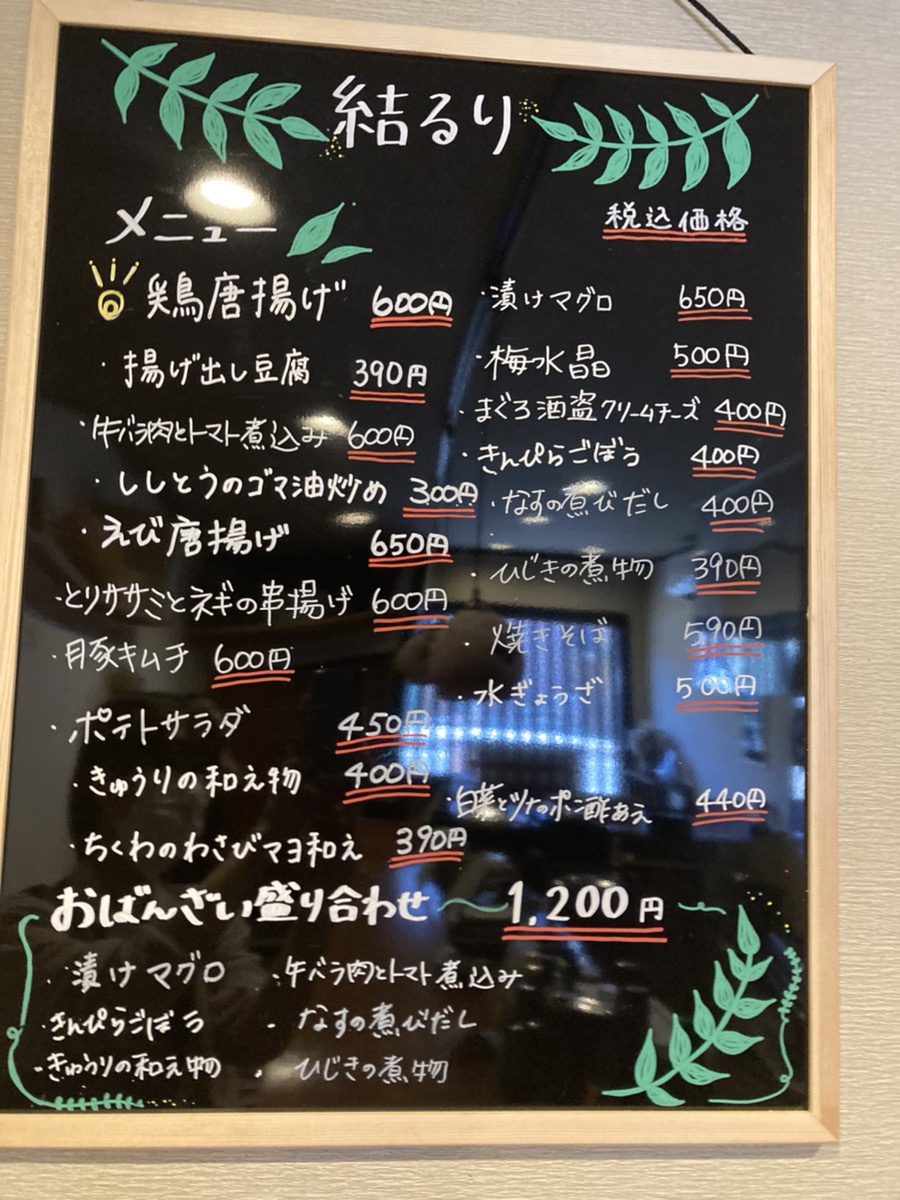 結るり
メニュー
税込価格
鶏唐揚げ 600円
・揚げ出し豆腐 390円
・牛バラ肉とトマト煮込み 600円
・ししとうのゴマ油炒め 300円
・えび唐揚げ 650円
・とりササミとネギの串揚げ 600円
・豚キムチ 600円
・ポテトサラダ 450円
・きゅうりの和え物 400円
・ちくわのわさびマヨ和え 390円
・漬けマグロ 650円
・梅水晶 500円
・まぐろ酒盗クリームチーズ 400円
・きんぴらごぼう 400円
・なすの煮びだし 400円
・ひじきの煮物 390円
・焼きそば 590円
・水ぎょうざ 500円
・白菜とツナのポン酢あえ 440円
おばんざい盛り合わせ 〜 1,200円 〜
・漬けマグロ ・牛バラ肉とトマト煮込み
・きんぴらごぼう ・なすの煮びだし
・きゅうりの和え物 ・ひじきの煮物